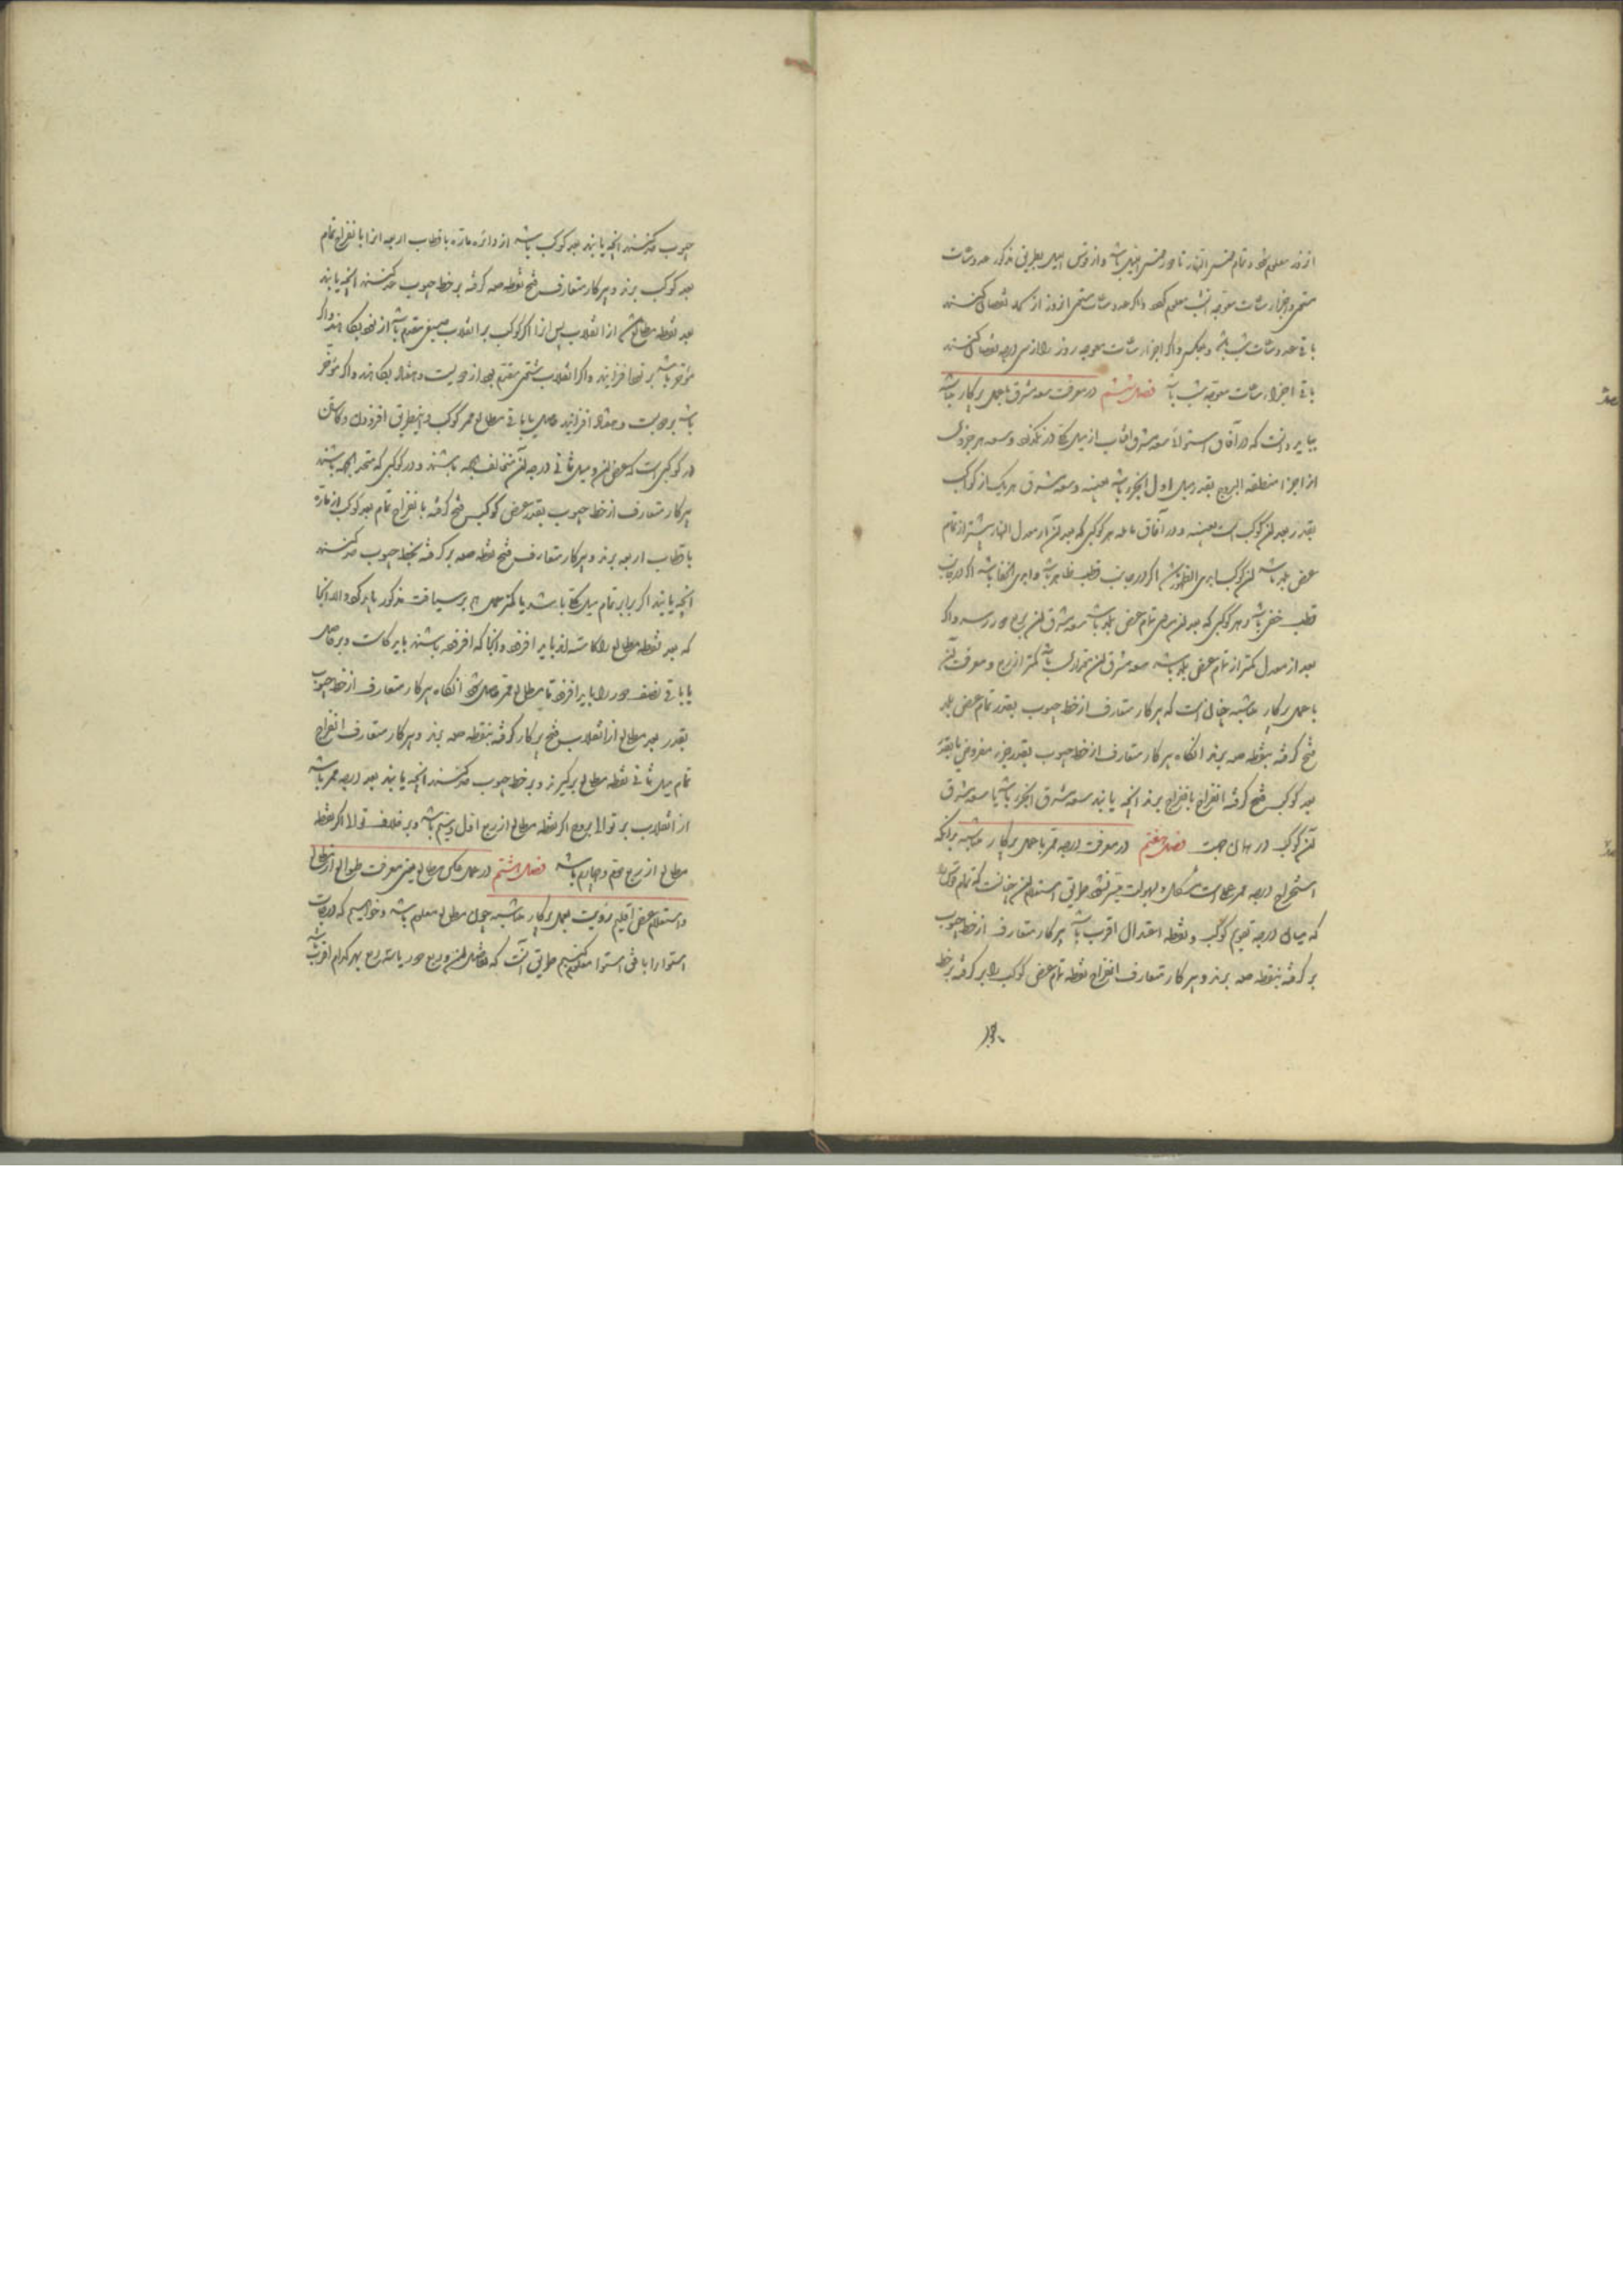 از روز معلوم شود و تمام قوس النهار تا دور قوس اللیل باشد و از قوس اللیل بطریق مذکور عدد ساعات
مستوی و اجزاء ساعات معوجه شب معلوم کنند و اگر عدد ساعات مستوی از روز از کد نقصان کنند
باقی عدد ساعات شب باشد و بالعکس و اگر اجزاء ساعات معوجه روز را از سی درجه نقصان کنند
باقی اجزاء ساعات معوجه شب باشد فصل ششم در معرفت سعه مشرق با عمل پرکار
بباید دانست که در آفاق استوا سعه مشرق آفتاب از میل کلی در نگذرد و سعه هر جزوی
از اجزاء منطقه البروج بقدر میل اول آنجزو باشد بعینه و سعه مشرق هر یک از کواکب
بقدر بعد آن کوکب است بعینه و در آفاق مائله هر کوکبی که بعد آن از معدل النهار بیشتر از تمام
عرض بلد باشد آن کوکب ابدی الظهور باشد اگر در جانب قطب ظاهر باشد و ابدی الخفا باشد اگر در جانب
قطب خفی باشد و هر کوکبی که بعد آن مساوی تمام عرض بلد باشد سعه مشرق آن بربع دور رسد و اگر
بعد از معدل کمتر از تمام عرض بلد باشد سعه مشرق آن کوکب کمتر از ربع و معرفت آن
با عمل پرکار چنان است که پرکار متعارف از خط جیوب بقدر تمام عرض بلد
فتح کرده بنقطه صه برند آنگاه پرکار متعارف از خط جیوب بقدر جزء مفروض یا بقدر
بعد کوکب فتح کرده انفراج بانفراج برند آنچه یابند سعه مشرق آنجزو باشد یا سعه مشرق
آن کوکب در همان جهت فصل هفتم در معرفت درجه ممر با عمل پرکار بدانکه
استخراج درجه ممر است مشکل و بسهولت میسر نشود طریق استعلام آن چنانست که تمام
که میان درجه تقویم کوکب و نقطه اعتدال اقرب باشد پرکار متعارف از خط جیوب
بر گرفته بنقطه صه برند و پرکار متعارف انفراج نقطه تمام عرض کوکب را بر گرفته بر خط
جیوب مد کنند آنچه یابند بعد کوکب باشد از دائره ماره باقطاب اربعه آنرا با انفراج تمام
بعد کوکب برند و پرکار متعارف فتح نقطه صه گرفته بر خط جیوب مد کنند آنچه یابند
بعد نقطه مطالع باشد از انقلاب پس از آن اگر کوکب بر انقلاب صیفی مقدم باشد از بکاهند و اگر
مؤخر باشد بر افزایند و اگر انقلاب شتوی مقدم بود از دویست و هفتاد بکاهند و اگر مؤخر
باشد بر دویست و هفتاد افزایند حاصل یا باقی مطالع ممر کوکب و این طریق افزودن و کاستن
در کوکبی است که عرض آن و میل ثانی درجه آن مختلف الجهه باشند و در کوکبی که متحد الجهه باشند
پرکار متعارف از خط جیوب بقدر عرض کوکب فتح کرده با انفراج تمام بعد کوکب از ماره
باقطاب اربعه برند و پرکار متعارف فتح نقطه صه بر گرفته بخط جیوب مد کنند
آنچه یابند اگر برابر تمام میل کلی باشد یا کمتر عمل بر سیاقت مذکور باید کرد و الا آنجا
که بعد نقطه مطالع را کاسته‌اند باید افزود و آنجا که افزوده باشند باید کاست و بر حاصل
یا باقی نصف دور را باید افزود تا مطالع ممر حاصل شود آنگاه پرکار متعارف از خط جیوب
بقدر بعد مطالع از انقلاب فتح پرکار کرده بنقطه صه برند و پرکار متعارف انفراج
تمام میل ثانی نقطه مطالع بر گیرند و بر خط جیوب مد کنند آنچه یابند بعد درجه ممر باشد
از انقلاب بر توالی بروج اگر نقطه مطالع از ربع اول و سیم باشد و بر خلاف توالی اگر نقطه
مطالع از ربع دوم و چهارم باشد فصل هشتم در عمل عکس مطالع یعنی معرفت طوالع از مطالع
و استعلام عرض اقلیم رؤیت بعمل پرکار چون مطالع معلوم باشد و خواهیم که درجات
استوا را بافق استوا معلوم کنیم طریق آنست که تفاضل آن و ربع دور یا سه ربع بهر کدام اقرب باشد